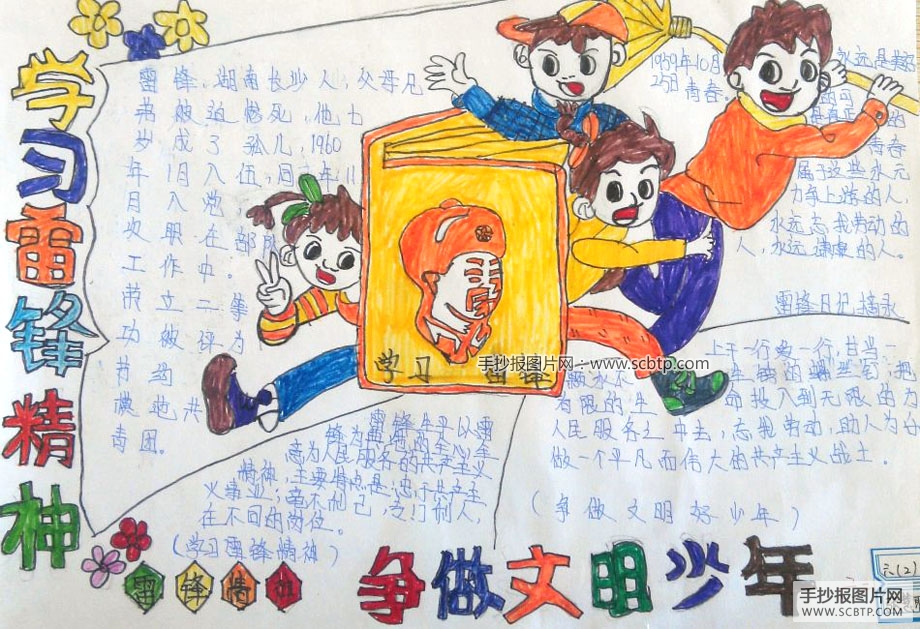 学习雷锋精神
雷锋,湖南长沙人,父母兄
弟被迫惨死,他七
岁成了孤儿,1960
年1月入伍,同年11
月入党
在部队
工作中。
荣立二等
功被评为
节约
共
青团。
学习 雷锋
手抄报图片网:www.scbtp.com
1959年10月
25日 青春。
永远是美
的可
的
青春
属于这些永元
力争上游的人,
永远忘我劳动的
人,永远谦虚的人。
雷锋日记摘永
上干一行爱一行,甘当一
生锈的螺丝钉;把
有限的生 命投入到无限的为
人民服务之中去,忘我劳动,助人为
做一个平凡而伟大的共产主义战士。
(争做文明好少年)
雷锋生平以
高为人民服务的共产主义
精神,主要特点是:忠于共产主
义事业;毫不利己,专门利人,
在不同的岗位。
(学习雷锋精神)
雷锋精
争做文明少年
六(2)
手抄报图片网
WWW.SCBTP.COM